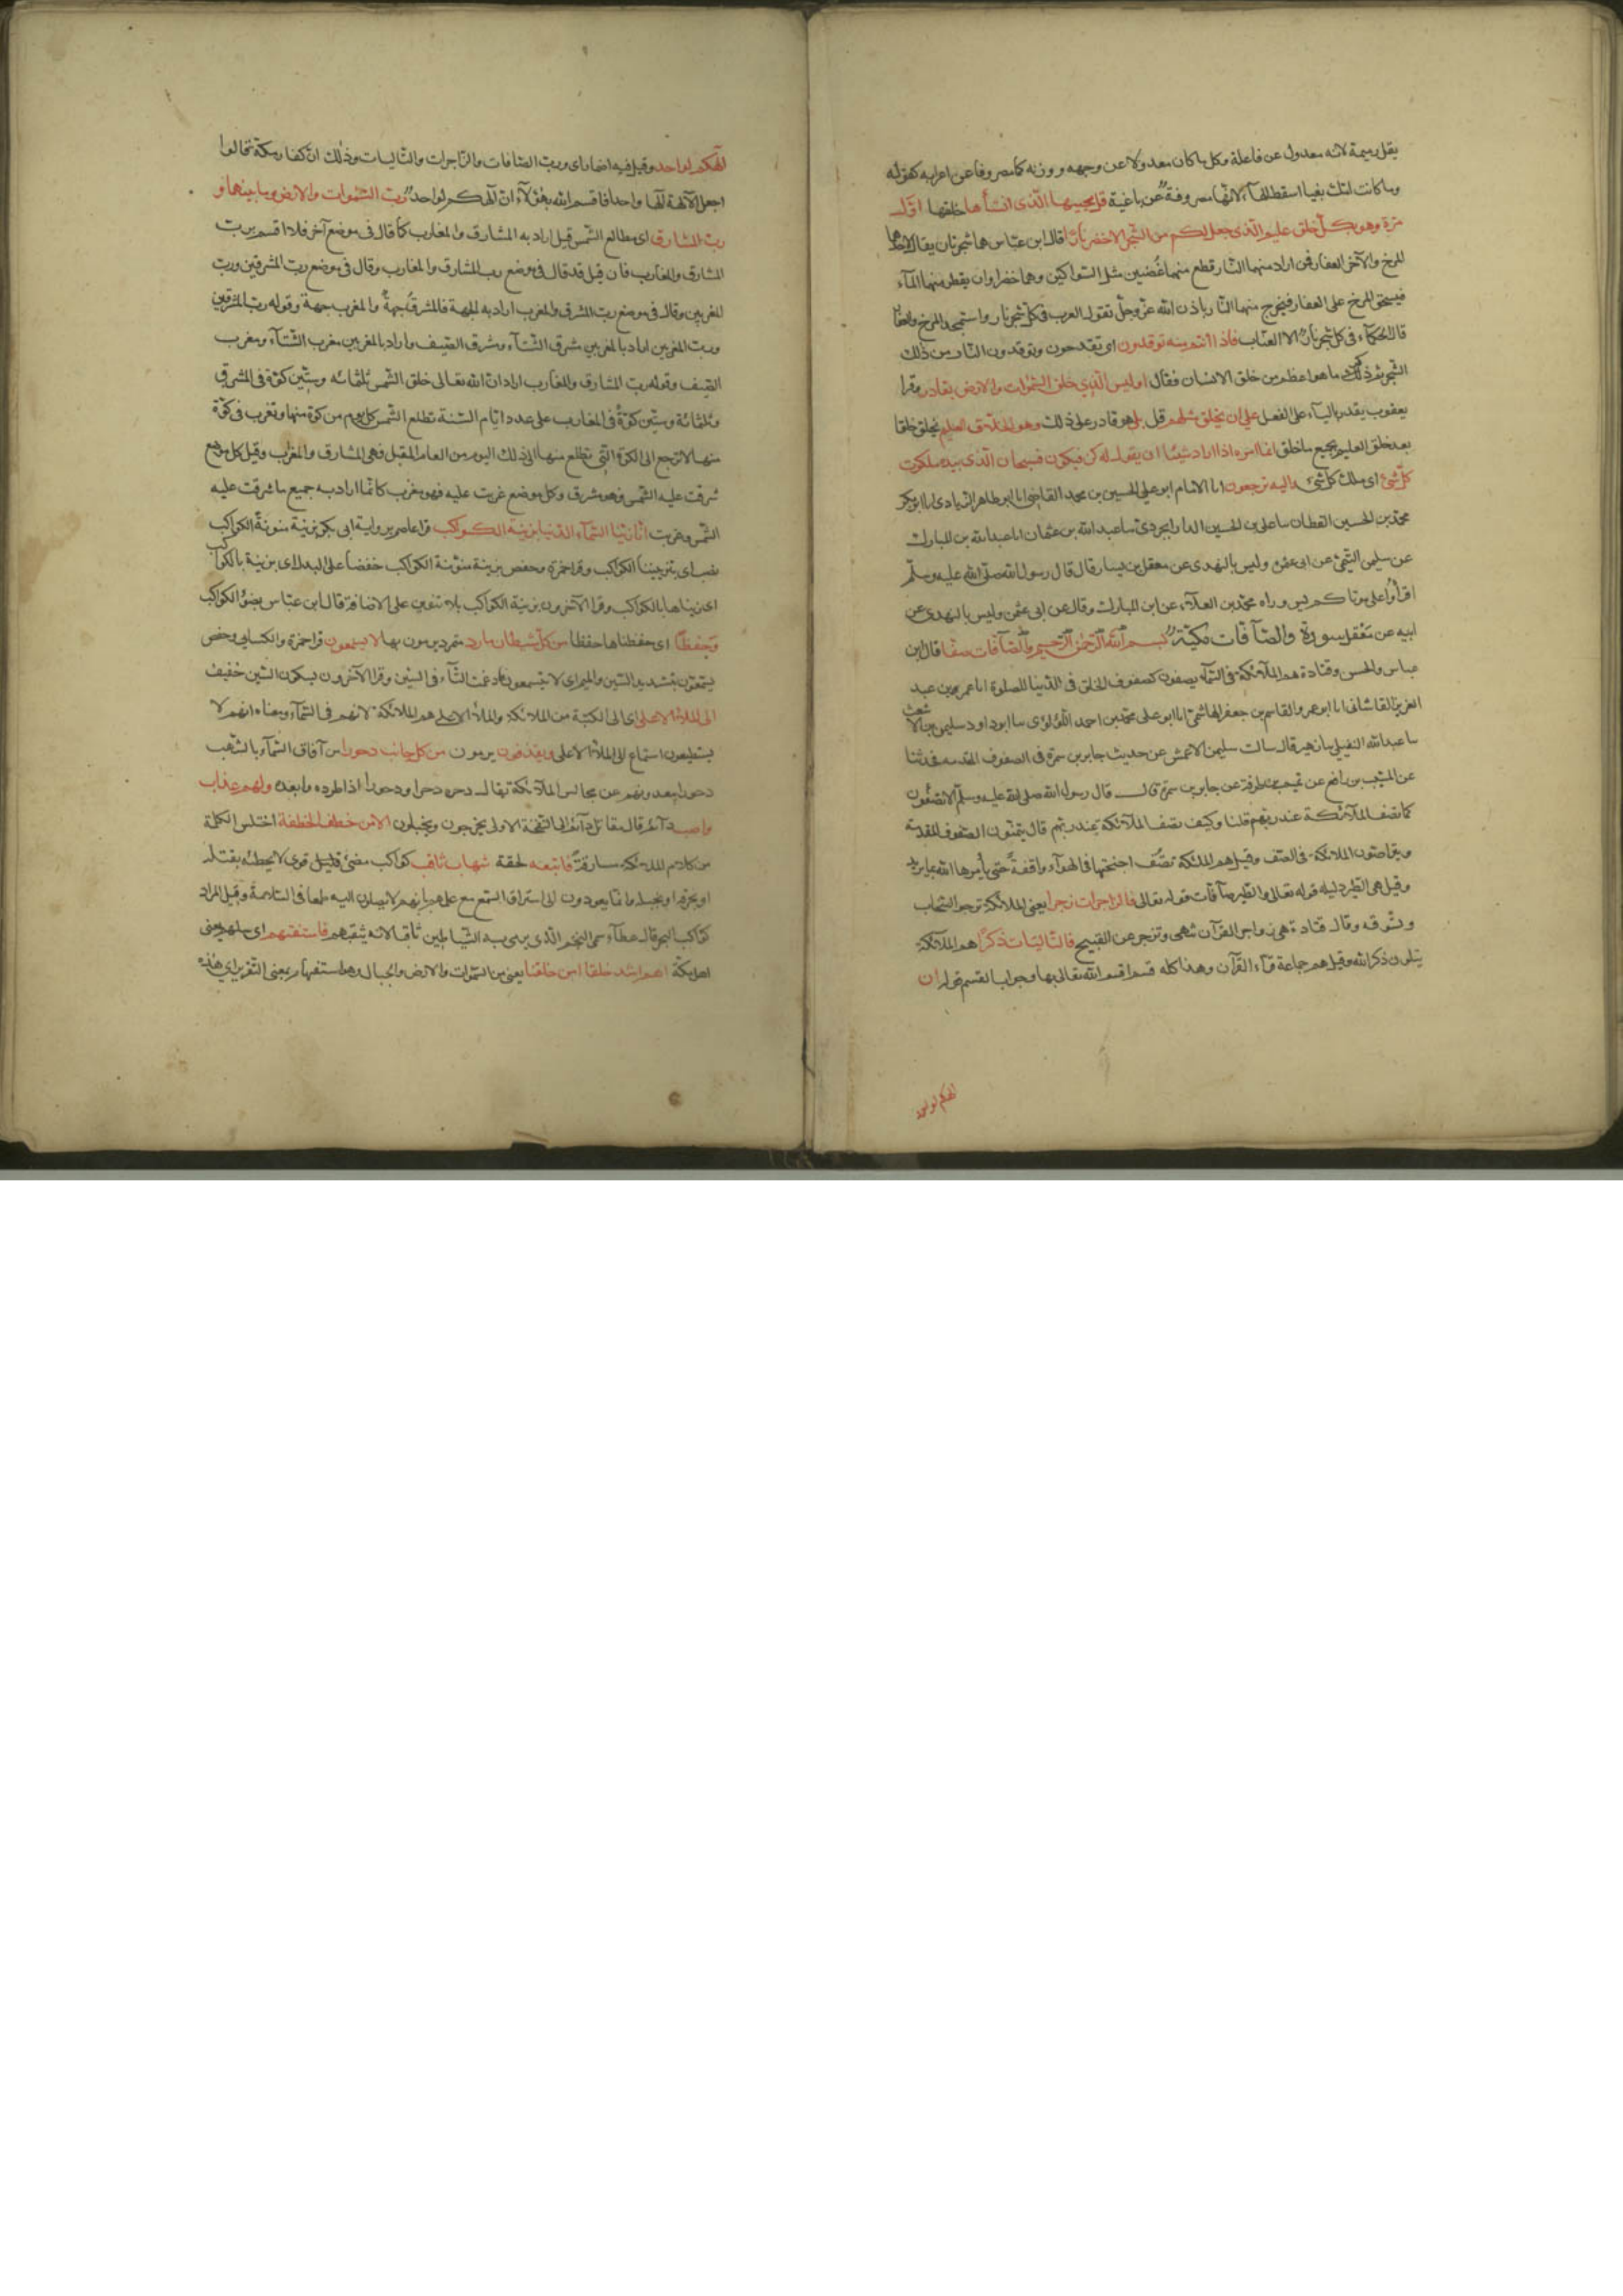 يقل رميمة لانه معدول عن فاعلة وكل ما كان معدولا عن وجهه ووزنه كان مصروفا عن اعرابه كقوله
وما كانت امك بغيا اسقط الهآء لانها مصروفة عن باغية قل يحييها الذى انشأها خلقها اول
مرة وهو بكل خلق عليم الذى جعل لكم من الشجر الاخضر نارا قال ابن عباس هما شجرتان يقال لاحدهما
المرخ والآخر العفار فمن اراد منهما النار قطع منهما غصنين مثل السواكين وهما خضراوان يقطر منهما المآء
فيسحق المرخ على العفار فيخرج منهما النار باذن الله عز وجل تقول العرب فى كل شجر نار واستمجد المرخ والعفار
قال الحكمآء فى كل شجر نار الا العناب فاذا انتم منه توقدون اى تقدحون وتوقدون النار من ذلك
الشجر ثم ذكر ما هو اعظم من خلق الانسان فقال اوليس الذى خلق السموات والارض بقادر وقرا
يعقوب يقدر باليآء على الفعل على ان يخلق مثلهم قل بلى هو قادر على ذلك وهو الخلاق العليم يخلق خلقا
بعد خلق العليم بجميع ما خلق انما امره اذا اراد شيئا ان يقول له كن فيكون فسبحان الذى بيده ملكوت
كل شئ اى ملك كل شئ واليه ترجعون انا الامام ابو على الحسين بن محمد القاضى انا ابو طاهر الزيادى انا ابو بكر
محمد بن الحسين القطان سا على بن الحسين الدارابجردى سا عبد الله بن عثمان انا عبد الله بن المبارك
عن سليمن التيمى عن ابى عثمن وليس بالنهدى عن معقل بن يسار قال قال رسول الله صلى الله عليه وسلم
اقرأوا على موتاكم يس ورواه محمد بن العلآء عن ابن المبارك وقال عن ابى عثمن وليس بالنهدى عن
ابيه عن معقل سورة والصآفات مكية بسم الله الرحمن الرحيم والصآفات صفا قال ابن
عباس والحسن وقتادة هم الملآئكة فى السمآء يصفون كصفوف الخلق فى الدنيا للصلوة انا عمر بن عبد
العزيز القاشانى انا ابو عمر والقاسم بن جعفر الهاشمى انا ابو على محمد بن احمد اللؤلؤى سا ابو داود سليمن بن الاشعث
سا عبد الله النفيلى سا زهير قال سالت سليمن الاعمش عن حديث جابر بن سمرة فى الصفوف المقدمه فحدثنا
عن المسيب بن رافع عن تميم بن طرفة عن جابر بن سمرة قال قال رسول الله صلى الله عليه وسلم الا تصفون
كما تصف الملآئكة عند ربهم قلنا وكيف تصف الملآئكة عند ربهم قال يتمون الصفوف المقدمة
ويتراصون الملائكة فى الصف وقيل هم الملئكة تصف اجنحتها فى الهوآء واقفة حتى يأمرها الله بما يريد
وقيل هى الطير دليله قوله تعالى والطير صآفات قوله تعالى فالزاجرات زجرا يعنى الملائكة تزجر السحاب
وتسوقه وقال قتادة هى زواجر القرآن تنهى وتزجر عن القبيح فالتاليات ذكرا هم الملآئكة
يتلون ذكر الله وقيل هم جماعة قرآء القرآن وهذا كله قسم اقسم الله تعالى بها وجواب القسم قوله ان
الهكم لواحد
الهكم لواحد وقيل فيه اضمار اى ورب الصافات والزاجرات والتاليات وذلك ان كفار مكة قالوا
اجعل الآلهة الها واحدا فاقسم الله بهؤلآء ان الهكم لواحد رب السموات والارض وما بينهما و
رب المشارق اى مطالع الشمس قيل اراد به المشارق والمغارب كما قال فى موضع آخر فلا اقسم برب
المشارق والمغارب فان قيل قد قال فى موضع رب المشارق والمغارب وقال فى موضع رب المشرقين ورب
المغربين وقال فى موضع رب المشرق والمغرب اراد به الجهة فالمشرق جهة والمغرب جهة وقوله رب المشرقين
ورب المغربين اراد بالمشرقين مشرق الشتآء ومشرق الصيف واراد بالمغربين مغرب الشتآء ومغرب
الصيف وقوله رب المشارق والمغارب اراد ان الله تعالى خلق الشمس ثلثمائه وستين كوة فى المشرق
وثلثمائة وستين كوة فى المغارب على عدد ايام السنة تطلع الشمس كل يوم من كوة منها وتغرب فى كوة
منها لا ترجع الى الكوة التى تطلع منها الى ذلك اليوم من العام المقبل فهى المشارق والمغارب وقيل كل موضع
شرقت عليه الشمس فهو مشرق وكل موضع غربت عليه فهو مغرب كانما اراد به جميع ما شرقت عليه
الشمس وغربت انا زينا السمآء الدنيا بزينة الكواكب قرا عاصم برواية ابى بكر بزينة منونة الكواكب
نصب اى بتزييننا الكواكب وقرا حمزة وحفص بزينة منونة الكواكب خفضا على البدل اى بزينة بالكواكب
اى زيناها بالكواكب وقرا الآخرون بزينة الكواكب بلا تنوين على الاضافة قال ابن عباس بضوء الكواكب
وحفظا اى حفظناها حفظا من كل شيطان مارد متمرد يرمون بها لا يسمعون قرا حمزة والكسائى وحفص
يسمعون بتشديد السين والميم اى لا يتسمعون فادغمت التآء فى السين وقرا الآخرون بسكون السين خفيف
الى الملأ الاعلى اى الى الكتبة من الملائكة والملأ الاعلى هم الملائكة لانهم فى السمآء ومعناه انهم لا
يستطيعون استماع الى الملأ الاعلى ويقذفون يرمون من كل جانب دحورا من آفاق السمآء بالشهب
دحورا يبعدونهم عن مجالس الملآئكة يقال دحره دحرا ودحورا اذا طرده وابعده ولهم عذاب
واصب دآئم قال مقاتل دآئم الى النفخة الاولى يخرجون ويخبلون الا من خطف الخطفة اختلس الكلمة
من كلام الملائكة مسارقة فاتبعه لحقة شهاب ثاقب كواكب مضئ قوى لا يخطئه يقتله
او يحرقه او يخبله وانما يعودون الى استراق السمع مع علمهم بانهم لا يصلون اليه طمعا فى السلامة ونيل المراد
كواكب البحر قال عطآء سمى النجم الذى يرمى به الشياطين ثاقبا لانه يثقبهم فاستفتهم اى سلهم يعنى
اهل مكة اهم اشد خلقا امن خلقنا يعنى من السموات والارض والجبال وهو استفهام بمعنى التقرير اى هذه